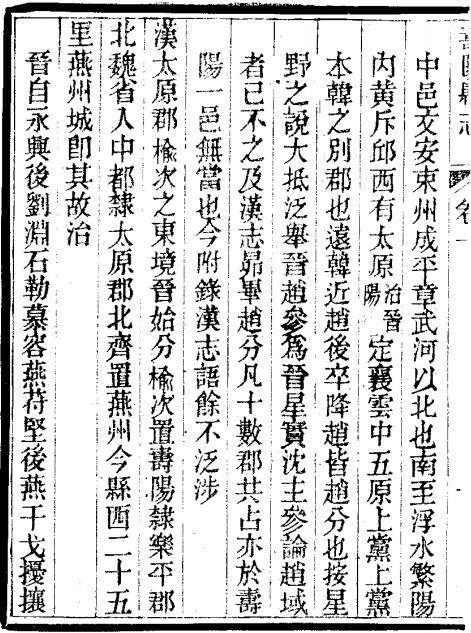 壽陽縣志 卷一
中邑文安東州成平章武河以北也南至浮水繁陽
內黃斥邱西有太原治晉陽定襄雲中五原上黨上黨
本韓之別郡也遠韓近趙後卒降趙皆趙分也按星
野之說大抵泛舉晉趙參爲晉星實沈主參論趙域
者已不之及漢志昴畢趙分凡十數郡其占亦於壽
陽一邑無當也今附錄漢志語餘不泛涉
漢太原郡榆次之東境晉始分榆次置壽陽隸樂平郡
北魏省入中都隸太原郡北齊置燕州今縣西二十五
里燕州城卽其故治
晉自永興後劉淵石勒慕容燕苻堅後燕干戈擾攘